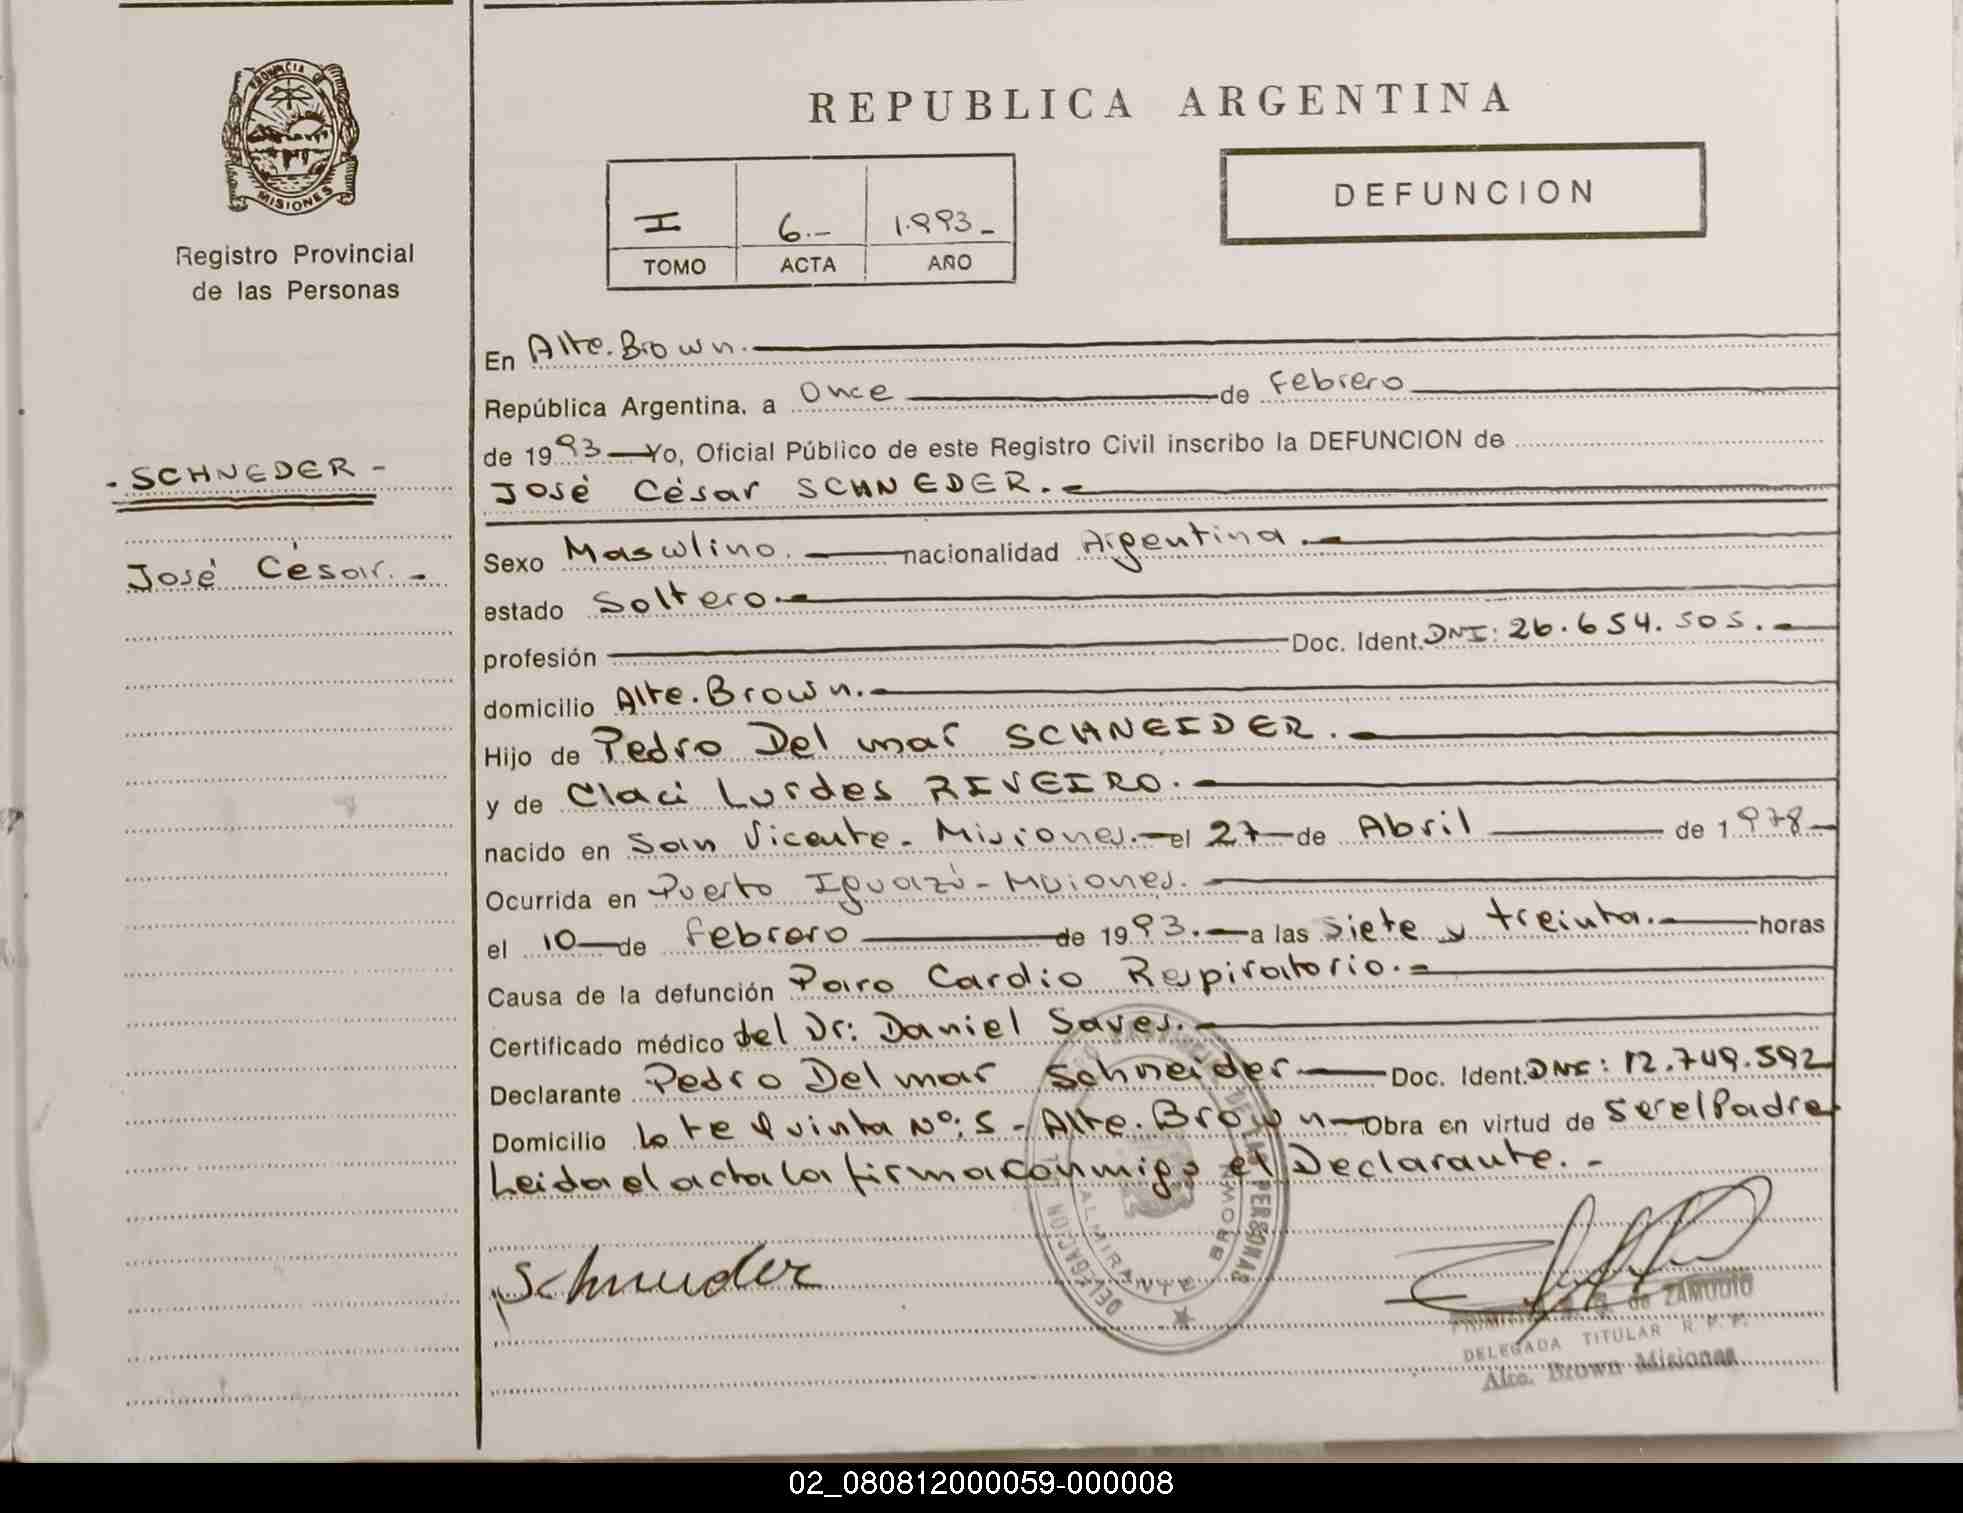 PROVINCIA DE
MISIONES
Registro Provincial
de las Personas
- SCHNEDER -
José César. -
REPUBLICA ARGENTINA
DEFUNCION
I 6.- 1.993_
TOMO ACTA AÑO
En Alte. Brown.
República Argentina, a Once de Febrero
de 1993 Yo, Oficial Público de este Registro Civil inscribo la DEFUNCION de
José César SCHNEDER. -
Sexo Masculino. nacionalidad Argentina. -
estado Soltero. -
profesión Doc. Ident. DNI: 26.654.505. -
domicilio Alte. Brown. -
Hijo de Pedro Del mar SCHNEIDER. -
y de Claci Lurdes RIVEIRO. -
nacido en San Vicente - Misiones. - el 27 de Abril de 1978
Ocurrida en Puerto Iguazú - Misiones. -
el 10 de Febrero de 1993. - a las Siete y treinta. horas
Causa de la defunción Paro Cardio Respiratorio. -
Certificado médico del Dr: Daniel Saves. -
Declarante Pedro Del mar Schneider Doc. Ident. DNI: 12.749.592
Domicilio Lote Quinta Nº: 5 - Alte. Brown Obra en virtud de Ser el Padre
Leida el acta la firma conmigo el Declarante. -
Schneider
DE LAS PERSONAS
DELEGACION
ALMIRANTE BROWN
de ZAMUDIO
DELEGADA TITULAR R. P. P.
Alte. Brown Misiones
02_080812000059-000008